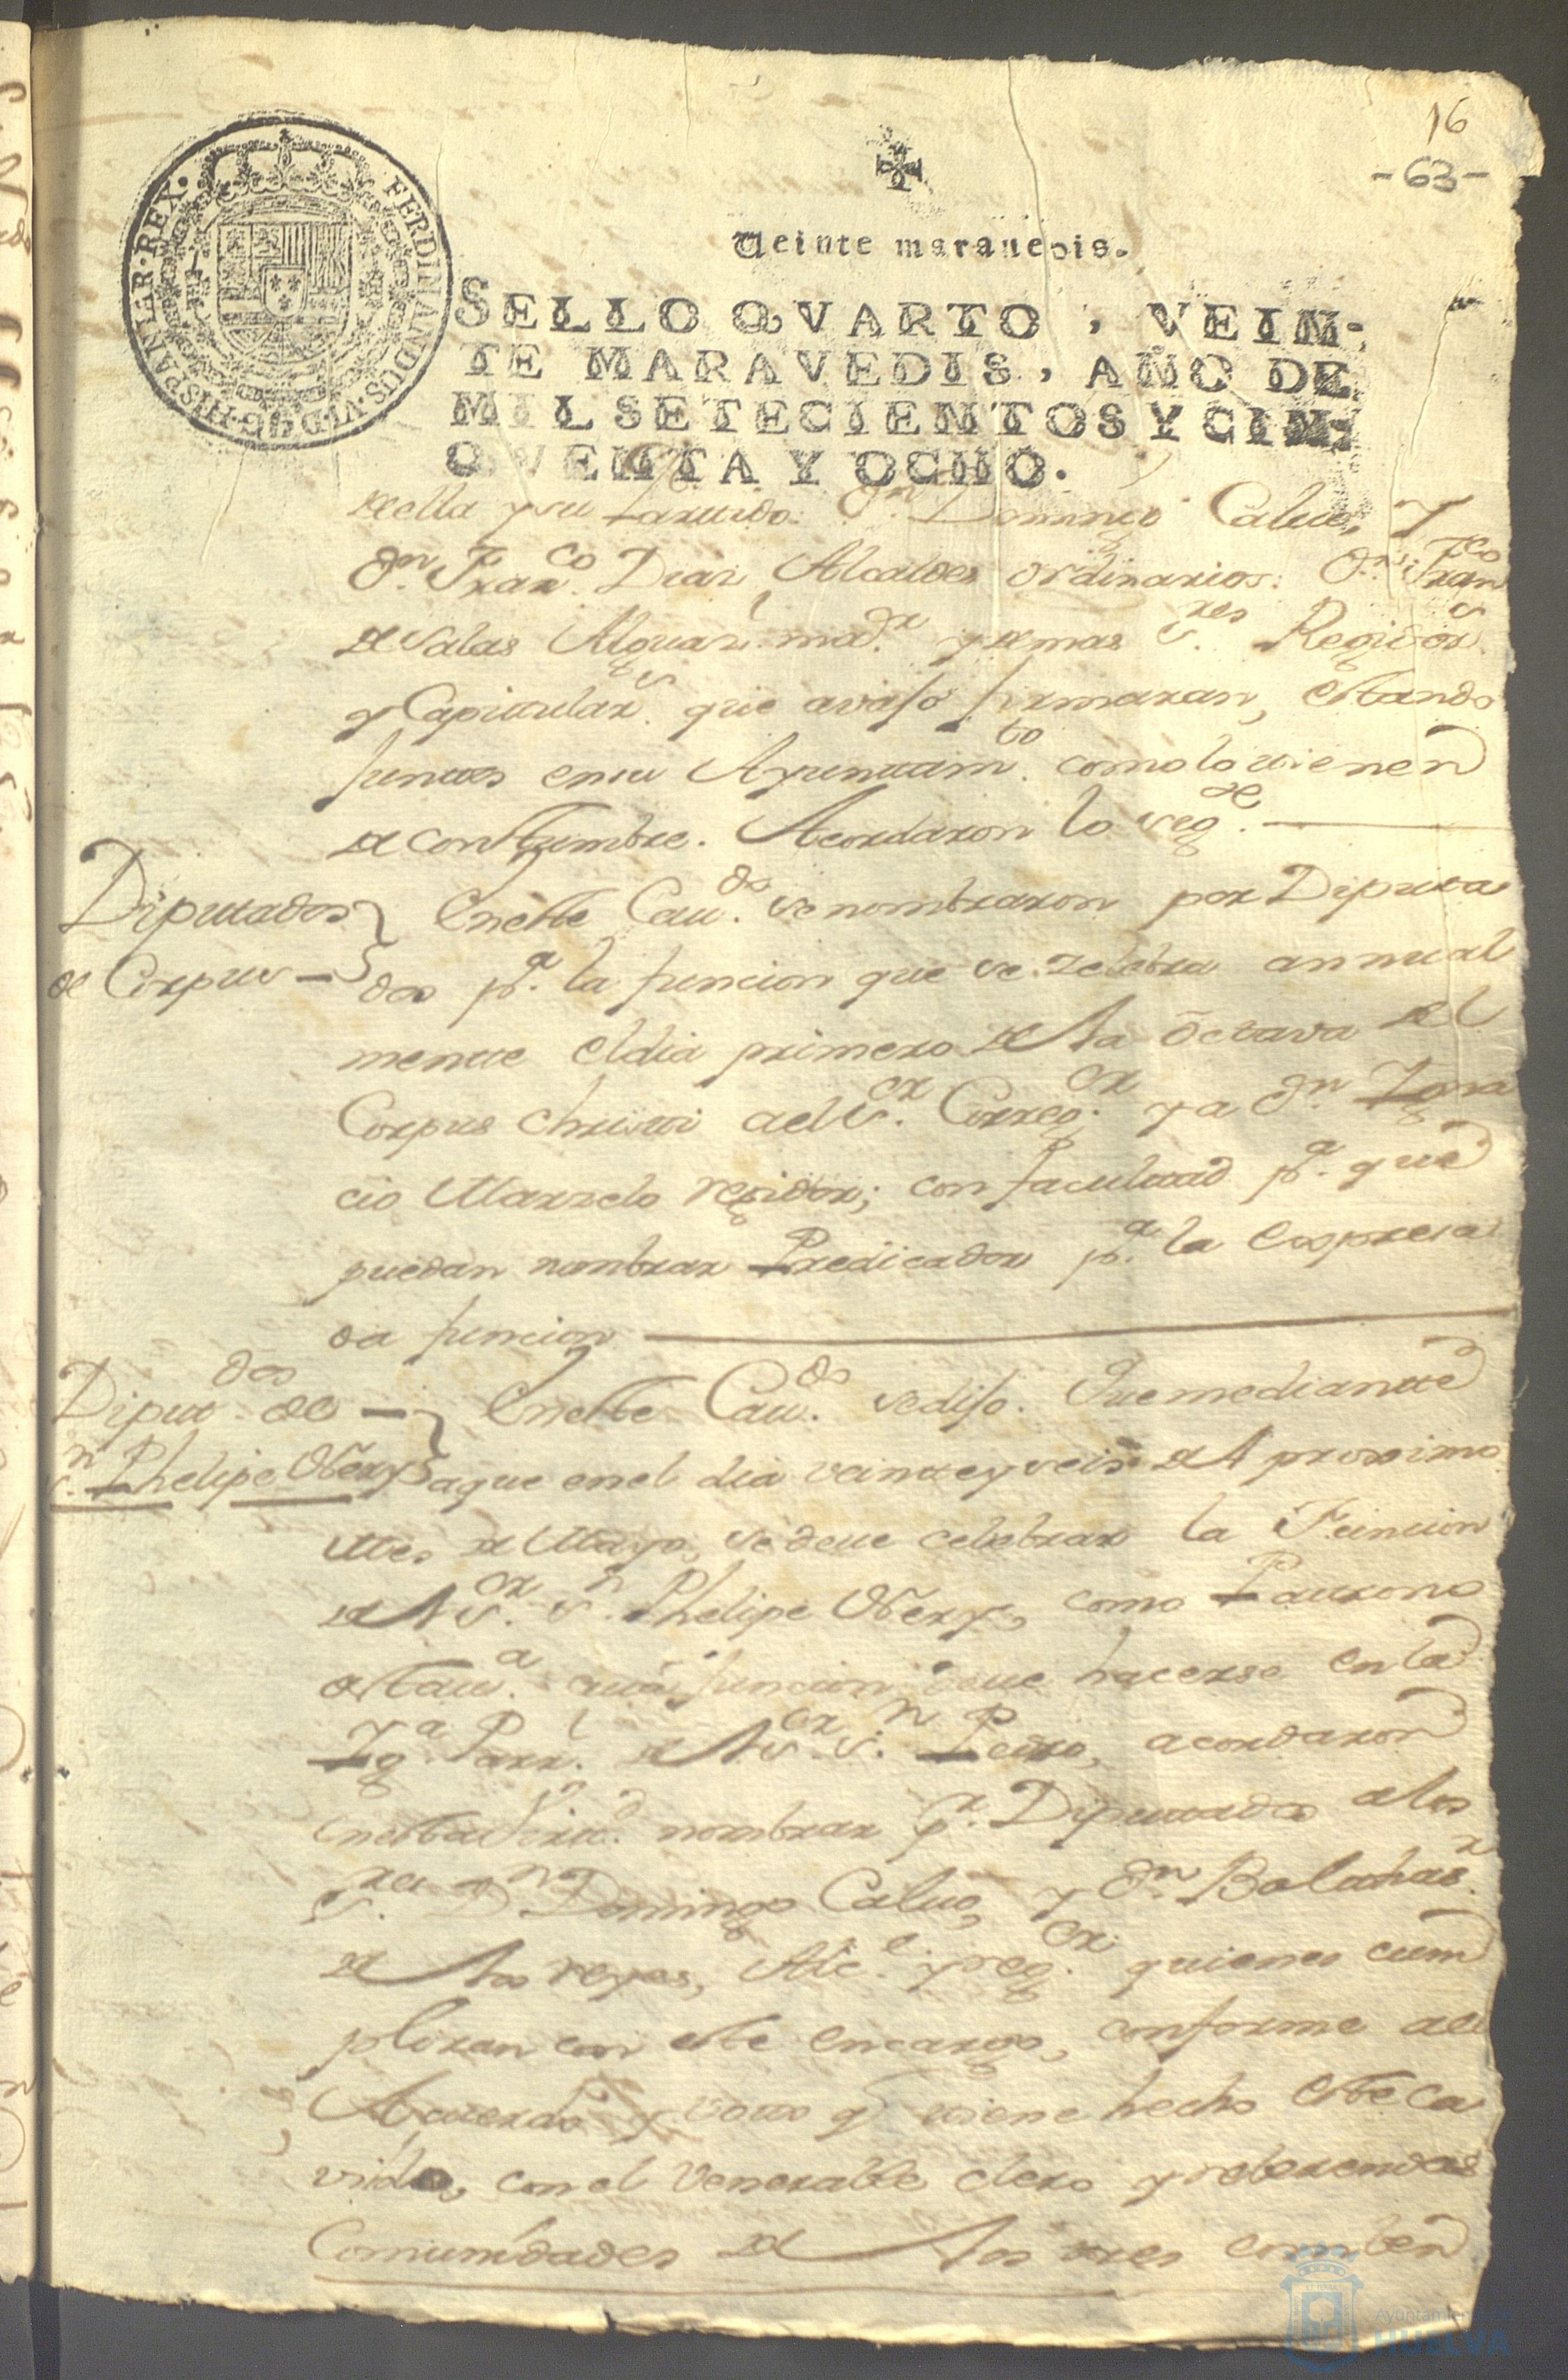 16
-63-
FERDINANDUS·VI·D·G·HISPANIAR·REX·
Veinte marauedis.
SELLO QVARTO, VEIN-
TE MARAVEDIS, AÑO DE
MIL SETECIENTOS Y CIN-
QVENTA Y OCHO.
de ella y su Partido: Dn. Domingo Caluo, Y
Dn. Franco. Diaz, Alcaldes ordinarios: Dn. Franco
de Salas Alguazl. mayr. y demas Sres. Regidors.
y Capitulars. que avajo firmaran, estando
juntos en su Ayuntamto. como lo tienen
de constumbre. Acordaron lo sigte.
Diputados
de Corpus
En este Caudo. se nombraron por Diputa
dos pa. la funcion que se zelebra annual
mente el dia primero de la octava del
Corpus christi al Sor. Corregor. y a Dn. Igna
cio Marzelo regidor; con facultad pa. que
puedan nombrar Predicador pa. la Expresa
da funcion
Diputdos. de
Sn. Phelipe Nery
En este Caudo. se dijo. Que mediante
a que en el dia veinte y seis del proximo
mes de Mayo, se deue celebrar la Funcion
del Sor. Sn. Phelipe Nery, como Patrono
de esta va. cuia funcion deue hacerse en la
Yga. Parrl. del Sor. Sn. Pedro, acordaron
en esta virtd. nombrar pr. Diputados a los
Sres. Dn. Domingo Caluo, y Dn. Balthasr.
de los reyes, Alce. y regor. quienes cum
pliran con este encargo, conforme al
Acuerdo y voto q tiene hecho este Ca
vildo, con el Venerable clero y reberendas
Comunidades de los tres comben
Ayuntamiento de
HUELVA